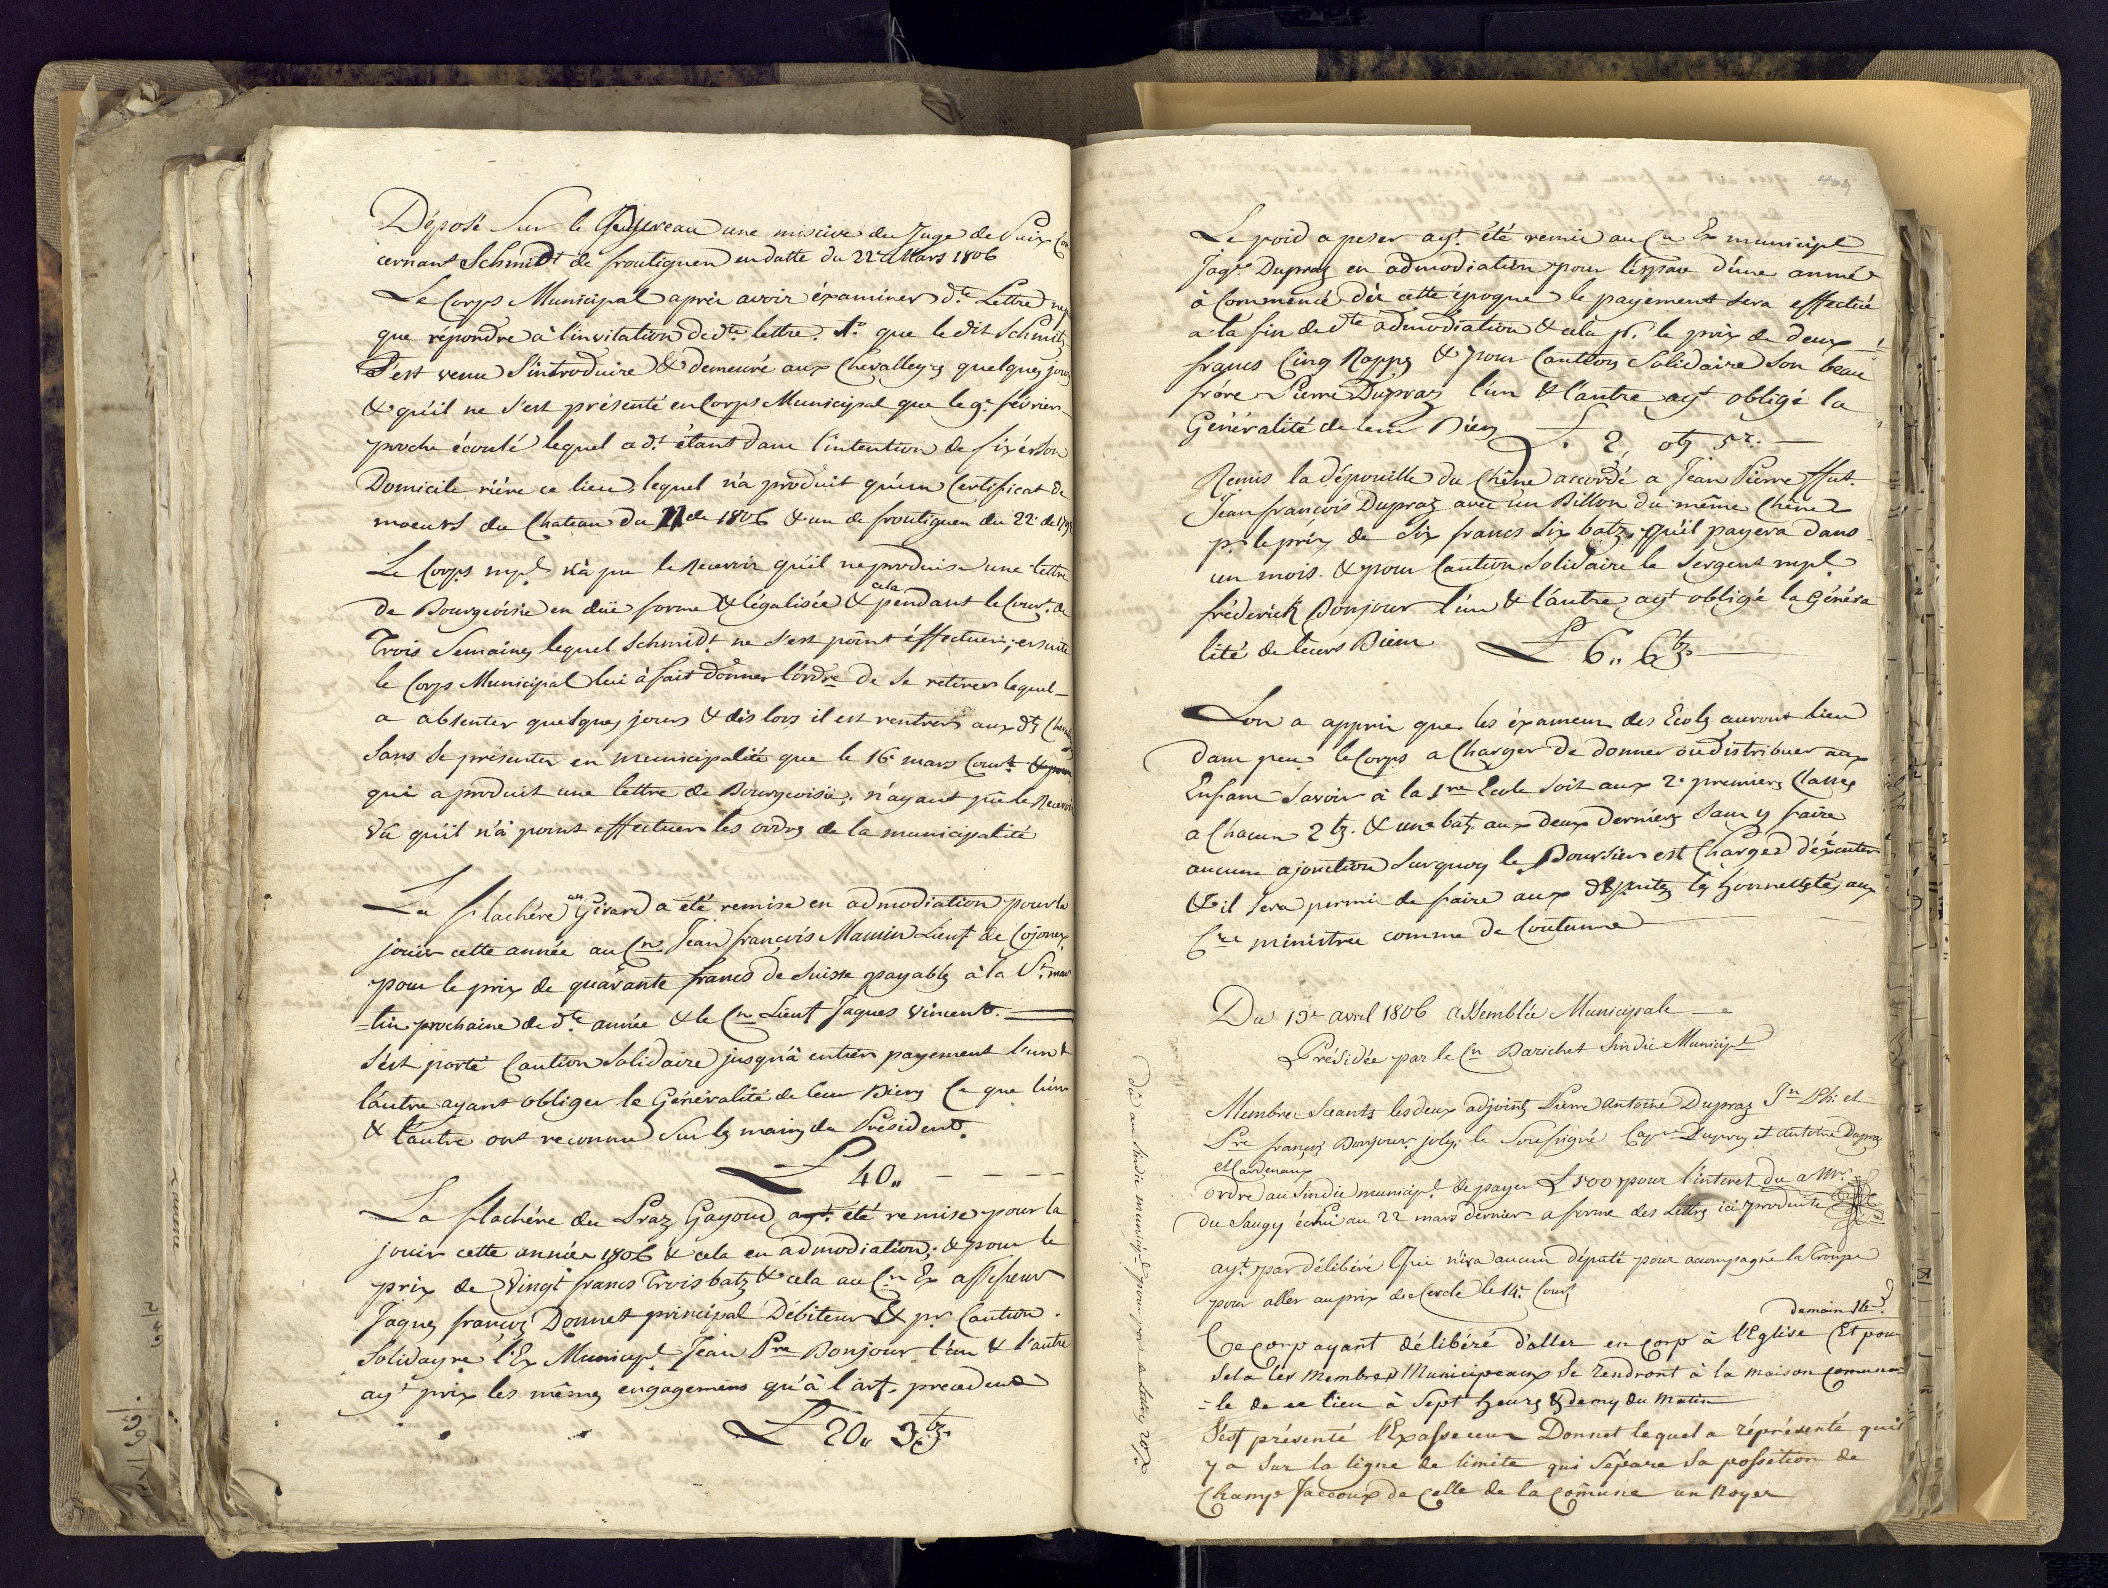 Déposé Sur le Bureau une missive du Juge de Paix Con
cernant Schmidt de froutiguen en datte du 22e Mars 1806
Le Corps Municipal aprèz avoir éxaminer d.te Lettre
que répondre à l'invitation de d.te lettre. 1o que le dit Schmitz
S'est venu S'introduire & demeuré aux Chevalleyrs quelques jours
& qu'il ne S'est présenté en Corps Municipal que le 9e février
proche écoulé lequel a d.t étant dans l'intention de fixér Son
Domicile riére ce lieu, lequel n'a produit qu'un Certificat de
moeurs du Chateau du 11 de 1806 & un de froutiguen du 22e de
Le Corps mpl n'à pu le Recevoir qu'il ne produise une lettre
de Bourgeoisie en düe forme & légalisée & cela pendant le Cour.t de
Trois Semaines lequel Schmidt ne S'est point éffectuer; ensuite
le Corps Municipal lui à fait donner l'ordre de Se retirer lequel
a absenter quelques jours & dès lors il est rentrer aux dts
Sans Se présenter en municipalité que le 16e mars Cour.t
qui a produit une lettre de Bourgeoisie; n'ayant pu le Recevoir
Vû qu'il n'à point effectuer les ordrs de la municipalité
La flachére à Girard a été remise en admodiation pour la
jouir cette année au Cn Jean françois Mamin Lieut de Cojonex
pour le prix de quarante francs de Suisse payables à la St mar
=tin prochaine de d.te année & le Cn Lieut Jaques Vincent.
S'est porté Caution Solidaire jusqu'à entier payement l'un &
láutre ayant obliger la Généralité de leur Biens Ce que l'un
& l'autre ont reconnu Sur les mains du Président.
L 40,, - - - -
La flachére du Praz Gayoud ayt. été remise pour la
jouir cette année 1806 & cela en admodiation; & pour le
prix de Vingt francs Trois batz & cela au Cn Ex assesseur
Jaques françois Donnet principal Débiteur & pr Caution
Solidayre l'Ex Municipl Jean Pre Bonjour l'un & l'autre
ayt prix les mêmes engagemens qu'à l'art. precedend
L 20,, 3 btz.
Le poid a peser ayt. été remis au Cn Ex municipl
Jaqs Dupraz en admodiation pour l'éspace d'une année
à Commencé dèz cette époque le payement Sera effectué
a la fin de d.te admodiation & cela pr. le prix de deux
francs Cinq Rappes & pour Caution Solidaire Son beau
frére Pierre Dupraz l'un & l'autre ayt obligé la
Généralité de leur Biens L. 2,, 0 bz 5 r.
Remis la dépouille du Chêne accordé a Jean Pierre ffut.
Jean francois Dupraz avec un Billon du même Chêne
pr. le prix de Six francs Six batz qu'il payera dans
un mois. & pour Caution Solidaire le Sergent mpl
fréderick Bonjour l'un & l'autre ayt obligé la Généra
lité de leurs Biens L 6,, 6 btz.
Lon a appris que les éxamens des Ecols auront lieu
dans peu le Corps a Charger de donner ou distribuer aux
Enfans Savoir à la 1re Ecole Soit aux 2e premiers Classes
a Chacun 2 bz. & une batz. aux deux derniers Sans y faire
aucune ajonction Surquoy le Boursier est Charger d'éxécuter
& il Sera permis de faire aux députés les honnettetés aux
Cre ministre comme de Coutume
Du 13e avril 1806 assemblée Municipale
Présidée par le Cn Barichet Sindic Municipl
Membres Sceants les deux adjoints Pierre Antoine Dupraz Jn Ls et
Pre françois Bonjour joly; le Sousigné Cape Dupraz et Antoine Dupraz
et Cardinaux
Ordre au Sindic municipl. de payer L 500 pour l'interet du a Mr.
du Saugy échu au 22 mars dernier a forme des Lettres ici produite
ayt. par délibéré qui n'ira aucun député pour acompagné la Troupe
pour aller au prix de Cercle le 14e Court
demain 14e
Ce corp ayant délibéré d'aller en corp à l'Eglise Et pour
Sela les Membres Municipeaux Se rendront à la maison Comuna
=le de ce lieu à Sept heurs & demy du Matin
S'est présenté l'Exassesseur Donnet lequel a réprésenté quil
y a Sur la ligne de limite qui Sépare Sa possétion de
Champs Jaccoux de Celle de la Comune un Noyer